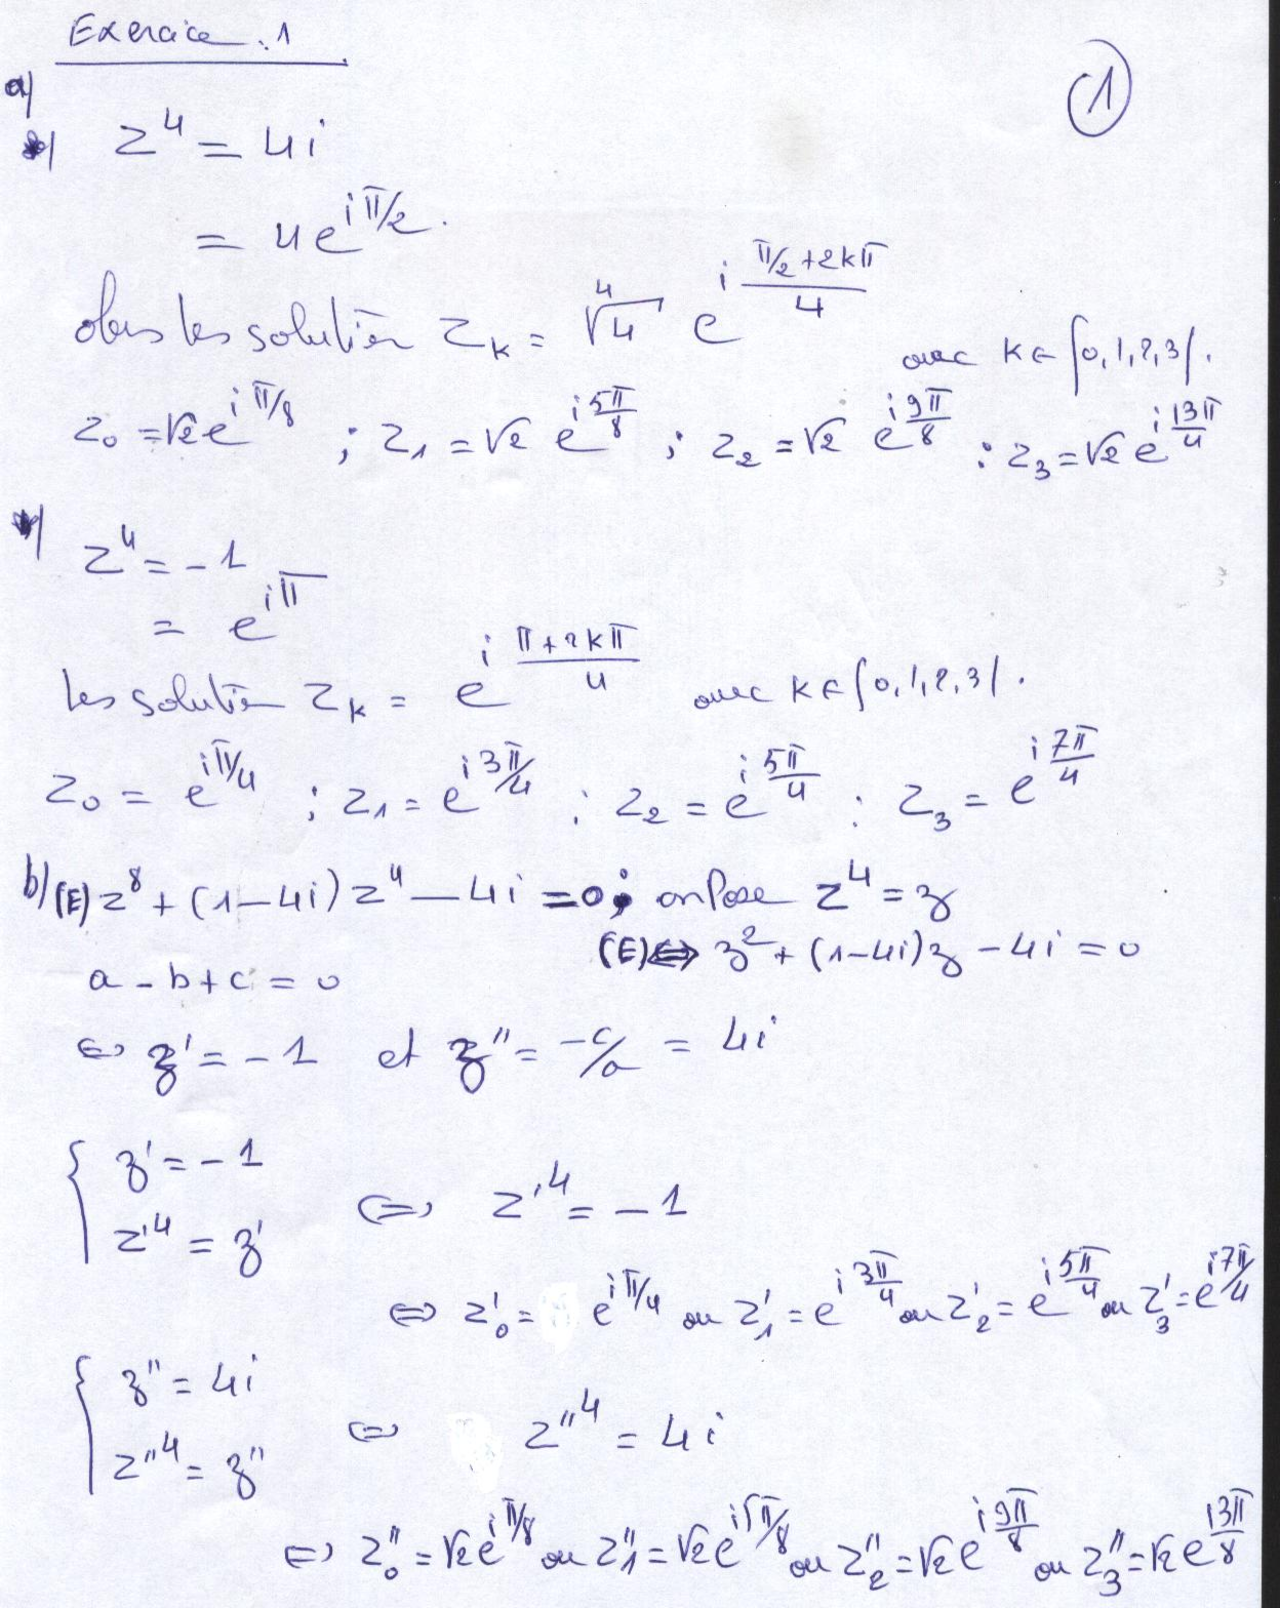 Exercice : 1
①
a)
*) z⁴ = 4i
= 4e^{iπ/2}.
alors les solution z_k = ⁴√4 e^{i (π/2+2kπ)/4} avec k ∈ {0,1,2,3}.
z₀ = √2 e^{iπ/8} ; z₁ = √2 e^{i5π/8} ; z₂ = √2 e^{i9π/8} ; z₃ = √2 e^{i13π/4}
*) z⁴ = -1
= e^{iπ}
les solution z_k = e^{i (π+2kπ)/4} avec k ∈ {0,1,2,3}.
z₀ = e^{iπ/4} ; z₁ = e^{i3π/4} ; z₂ = e^{i5π/4} ; z₃ = e^{i7π/4}
b) (E) z⁸ + (1-4i) z⁴ - 4i = 0 ; on pose z⁴ = ʒ
(E) ⇔ ʒ² + (1-4i)ʒ - 4i = 0
a - b + c = 0
⇔ ʒ' = -1 et ʒ'' = -c/a = 4i
{ ʒ' = -1
z'⁴ = ʒ' ⇔ z'⁴ = -1
⇔ z'₀ = e^{iπ/4} ou z'₁ = e^{i3π/4} ou z'₂ = e^{i5π/4} ou z'₃ = e^{i7π/4}
{ ʒ'' = 4i
z''⁴ = ʒ'' ⇔ z''⁴ = 4i
⇔ z''₀ = √2 e^{iπ/8} ou z''₁ = √2 e^{i5π/8} ou z''₂ = √2 e^{i9π/8} ou z''₃ = √2 e^{13π/8}